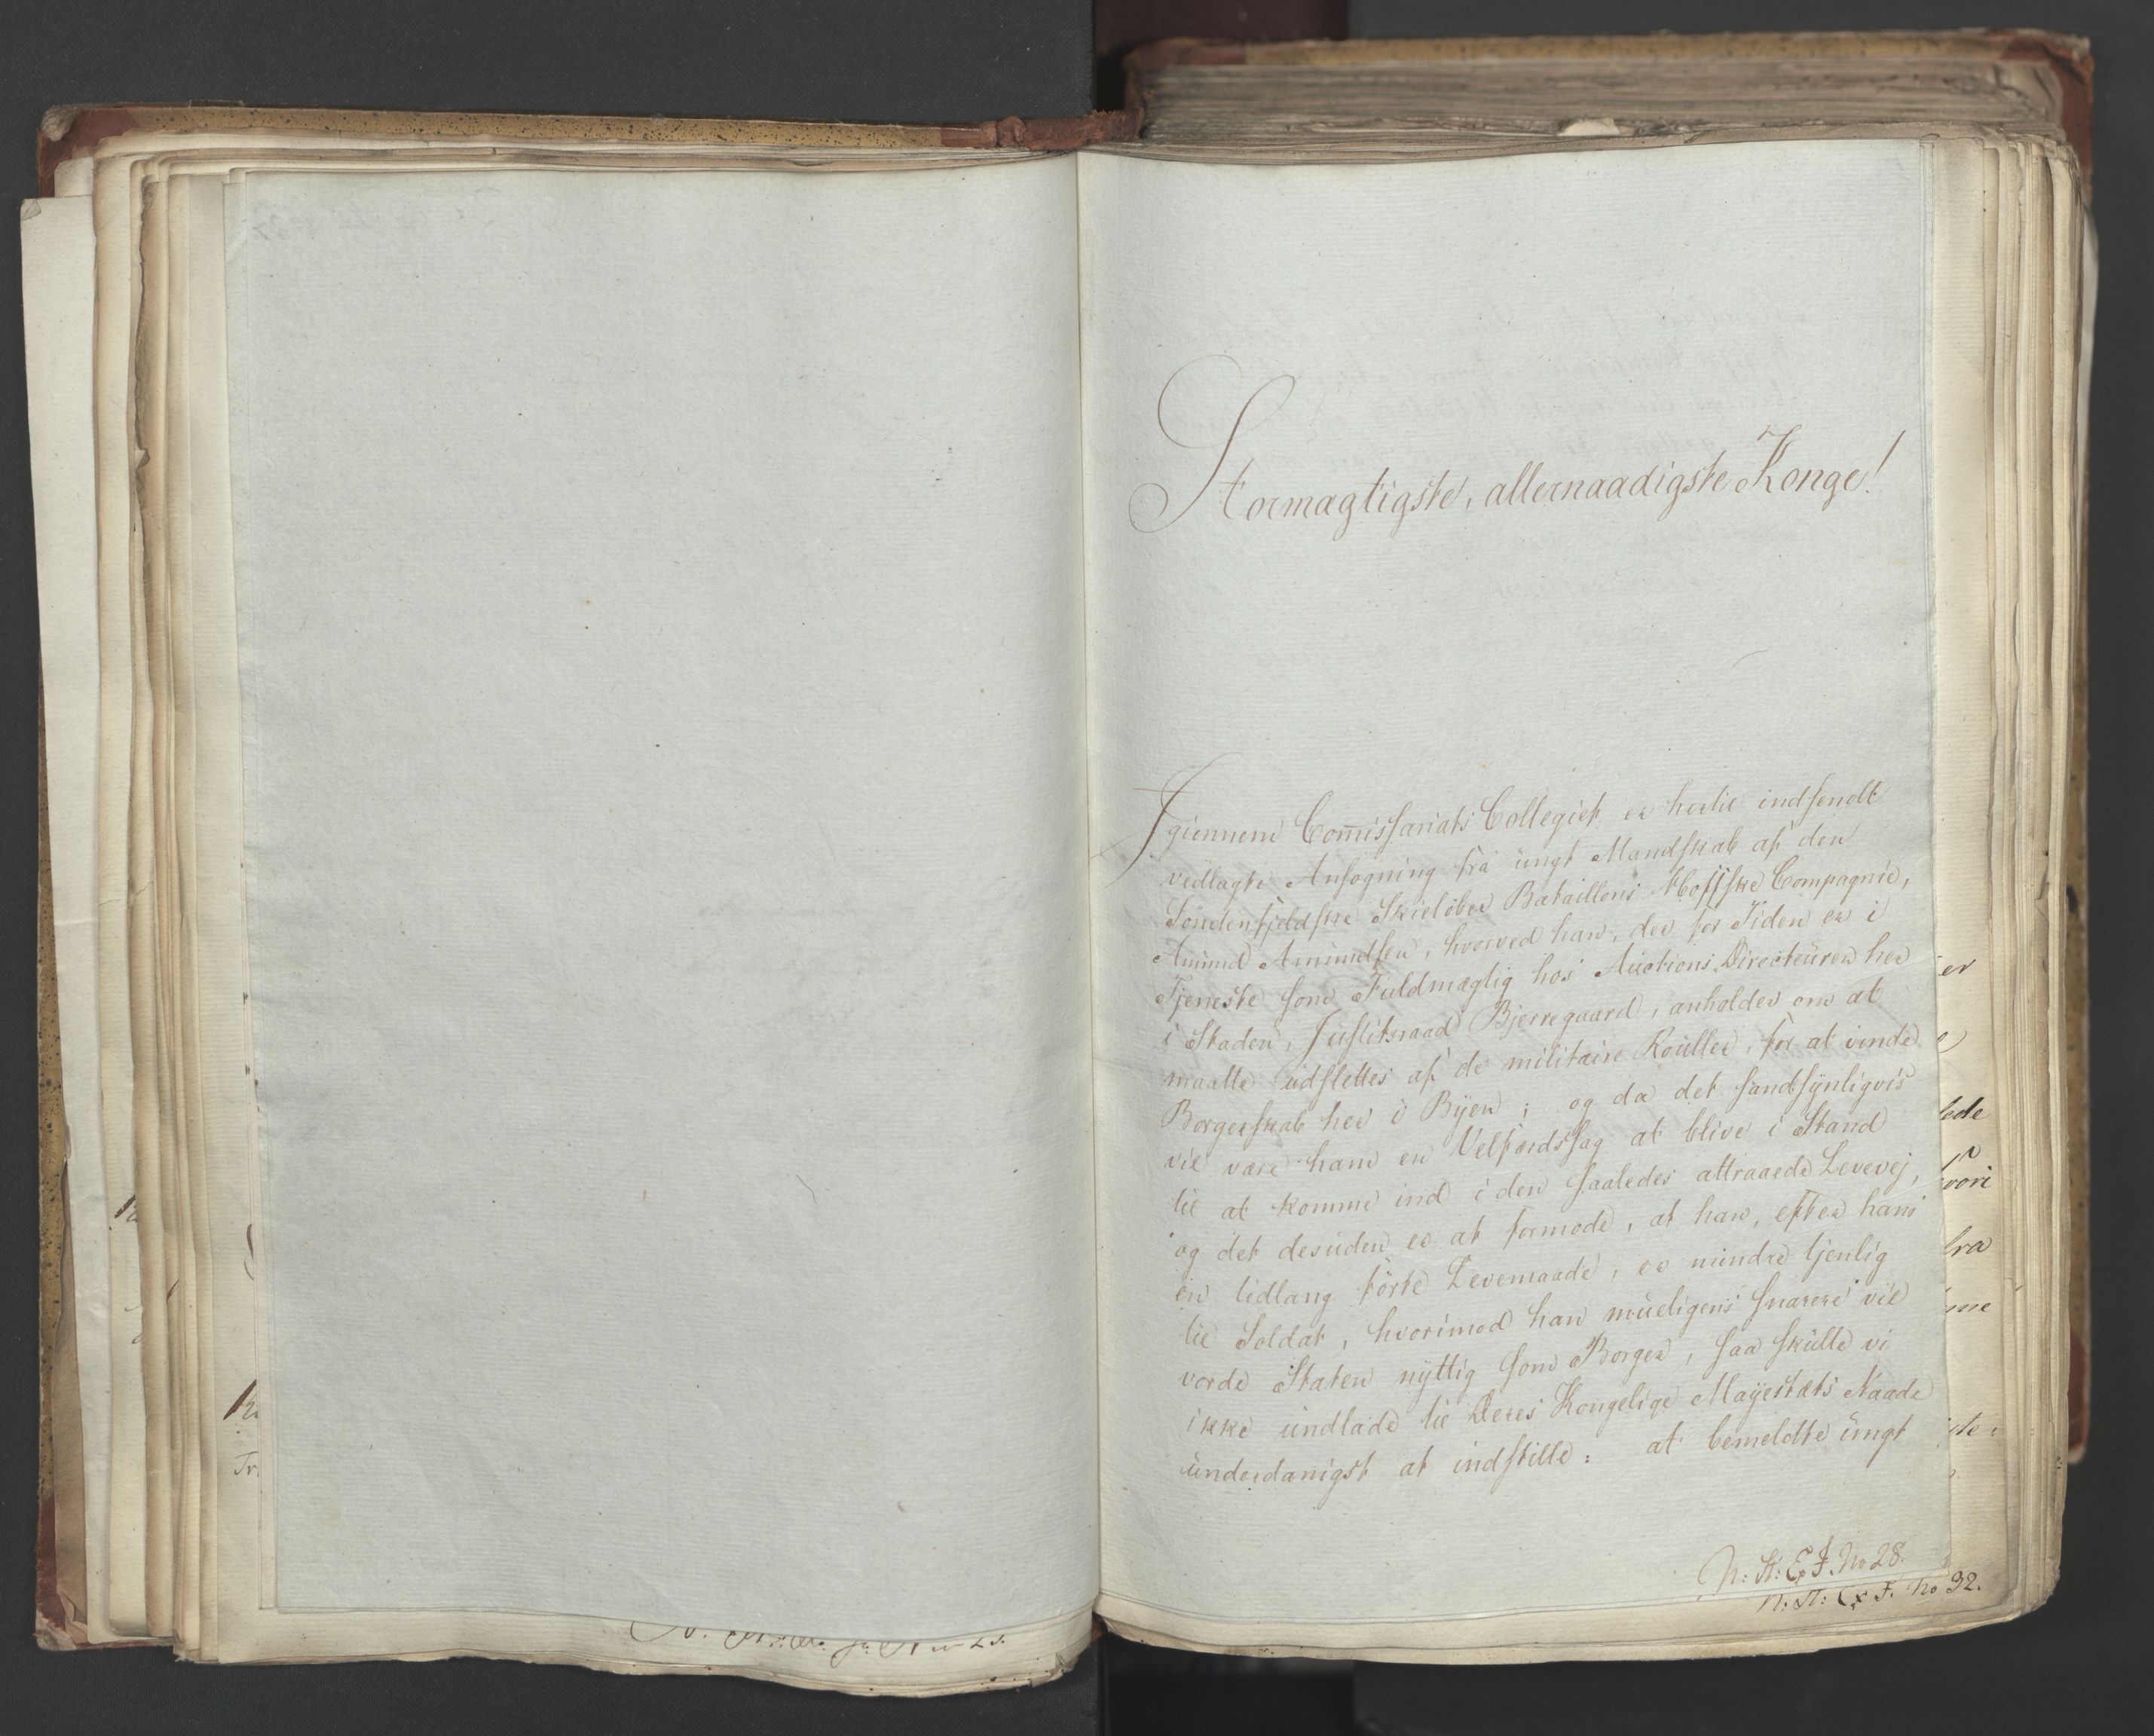 Stormægtigste, allernaadigste Konge!
Igiennem Com̅issariats Collegiet er hertil indsendt
vedlagte Ansøgning fra ungt Mandskab af den
Søndenfjeldske Skieløber Bataillons Mossiske Compagnie,
Amund Amundsen, hvorved han, der for Tiden er i
Tjeneste som Fuldmægtig hos Auctions Directeuren her
i Staden, Justitsraad Bjerregaard, anholder om at
maatte udslettes af de militaire Rouller, for at vinde
Borgerskab her i Byen; og da det sandsynligviis
vil være ham en Velfærdssag at blive i Stand
til at komme ind i den saaledes attraaede Levevej,
og det desuden er at formode, at han, efter hans
en tidlang førte Levemaade, er mindre tjenlig
til Soldat, hvorimod han mueligens snarere vil
vorde Staten nyttig som Borger, saa skulle vi
ikke undlade til Deres Kongelige Majestæts Naade
underdanigst at indstille: at bemeldte ungt
N: St: Ex J. No 28.
N: St: Ex J. No 32.